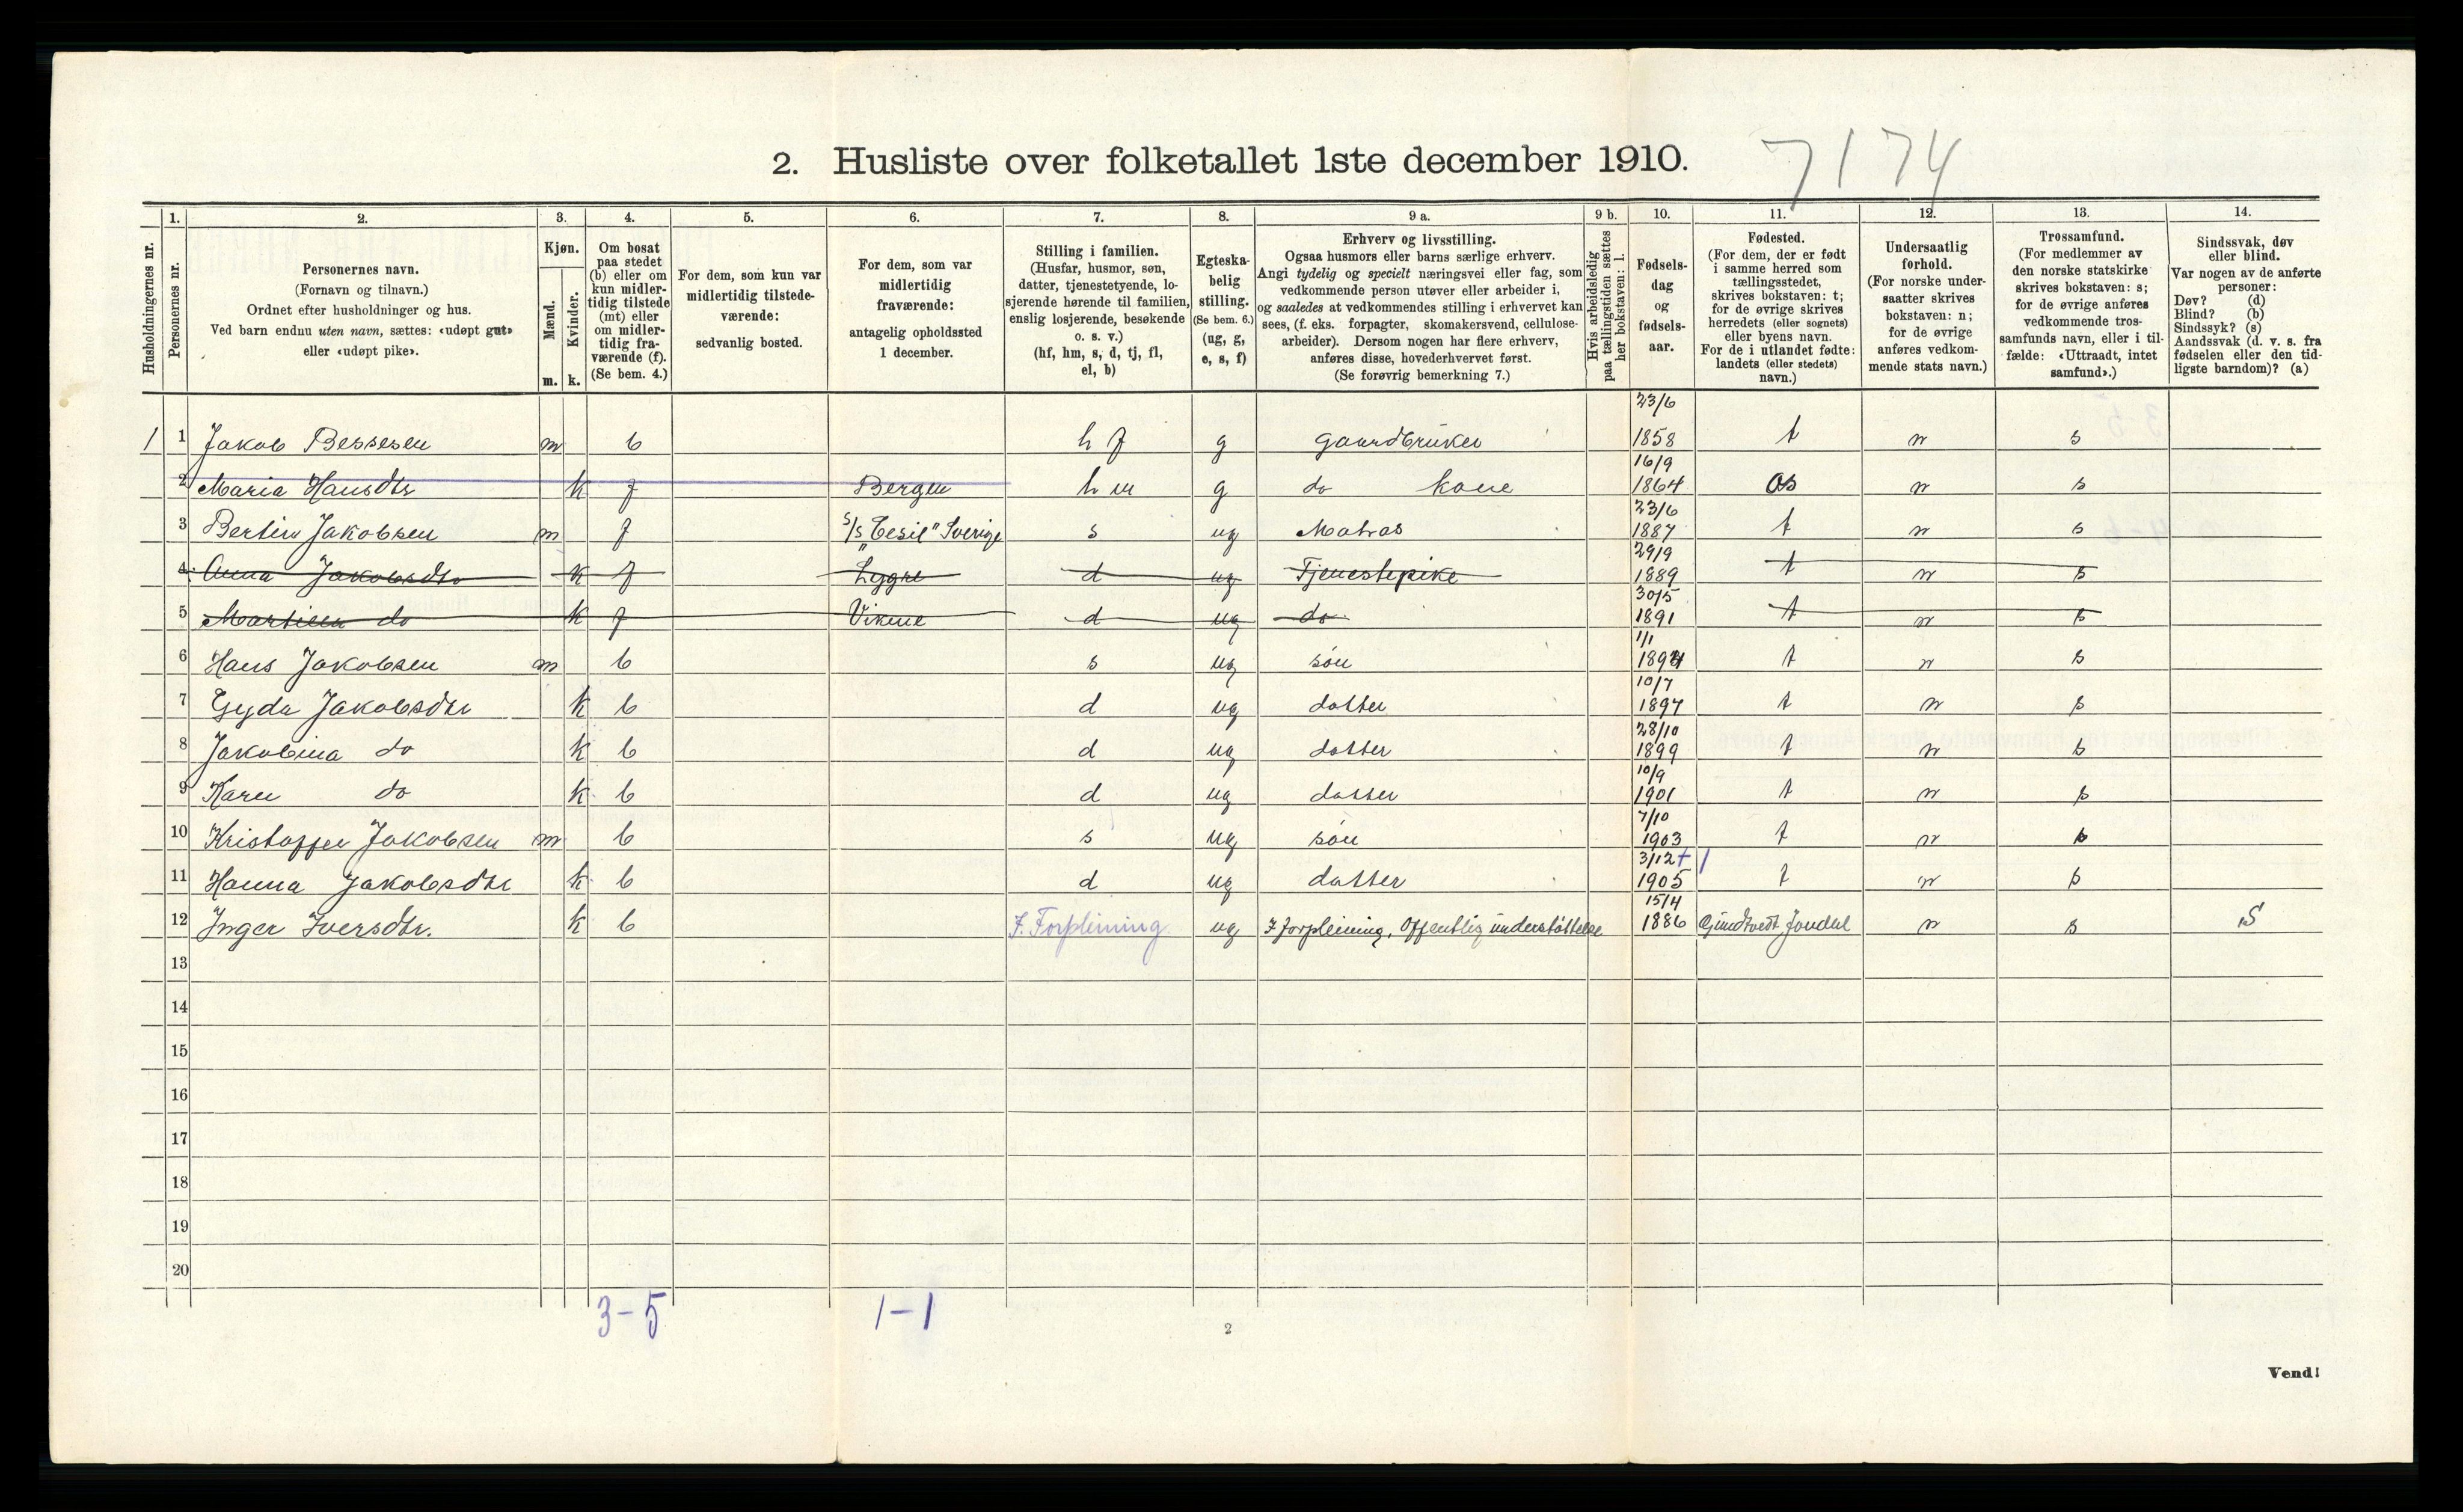 7174
2. Husliste over folketallet 1ste december 1910.
Husholdningernes nr.
1. Personernes nr.
2. Personernes navn.
(Fornavn og tilnavn.)
Ordnet efter husholdninger og hus.
Ved barn endnu uten navn, sættes: «udøpt gut»
eller «udøpt pike».
3. Kjøn.
Mænd. m.
Kvinder. k.
4. Om bosat
paa stedet
(b) eller om
kun midler-
tidig tilstede
(mt) eller
om midler-
tidig fra-
værende (f).
(Se bem. 4.)
5. For dem, som kun var
midlertidig tilstede-
værende:
sedvanlig bosted.
6. For dem, som var
midlertidig
fraværende:
antagelig opholdssted
1 december.
7. Stilling i familien.
(Husfar, husmor, søn,
datter, tjenestetyende, lo-
sjerende hørende til familien,
enslig losjerende, besøkende
o. s. v.)
(hf, hm, s, d, tj, fl,
el, b)
8. Egteska-
belig
stilling.
(Se bem. 6.)
(ug, g,
e, s, f)
9 a. Erhverv og livsstilling.
Ogsaa husmors eller barns særlige erhverv.
Angi tydelig og specielt næringsvei eller fag, som
vedkommende person utøver eller arbeider i,
og saaledes at vedkommendes stilling i erhvervet kan
sees, (f. eks. forpagter, skomakersvend, cellulose-
arbeider). Dersom nogen har flere erhverv,
anføres disse, hovederhvervet først.
(Se forøvrig bemerkning 7.)
9 b. Hvis arbeidsledig
paa tællingstiden sættes
her bokstaven: l.
10. Fødsels-
dag
og
fødsels-
aar.
11. Fødested.
(For dem, der er født
i samme herred som
tællingsstedet,
skrives bokstaven: t;
for de øvrige skrives
herredets (eller sognets)
eller byens navn.
For de i utlandet fødte:
landets (eller stedets)
navn.)
12. Undersaatlig
forhold.
(For norske under-
saatter skrives
bokstaven: n;
for de øvrige
anføres vedkom-
mende stats navn.)
13. Trossamfund.
(For medlemmer av
den norske statskirke
skrives bokstaven: s;
for de øvrige anføres
vedkommende tros-
samfunds navn, eller i til-
fælde: «Uttraadt, intet
samfund».)
14. Sindssvak, døv
eller blind.
Var nogen av de anførte
personer:
Døv? (d)
Blind? (b)
Sindssyk? (s)
Aandssvak (d. v. s. fra
fødselen eller den tid-
ligste barndom)? (a)
1 1 Jakob Bessesen m b hf g gaardbruker 23/6 1858 t n s
2 Maria Hansdtr k f Bergen hm g do kone 16/9 1864 Os n s
3 Bertin Jakobsen m f S/S "Cesil" Sverige s ug Matros 23/6 1887 t n s
4 Anna Jakobsdtr k f Lygre d ug Tjenestepike 29/9 1889 t n s
5 do k f Vikene d ug do 30/5 1891 t n s
6 Hans Jakobsen m b s ug søn 1/1 1894 t n s
7 Gyda Jakobsdtr k b d ug datter 10/7 1897 t n s
8 Jakobina do k b d ug datter 28/10 1899 t n s
9 Karen do k b d ug datter 10/9 1901 t n s
10 Kristoffer Jakobsen m b s ug søn 7/10 1903 t n s
11 Hanna Jakobsdtr k b d ug datter 3/12 1905 t n s
12 Inger Iversdtr. k b I. Forpleining ug I forpleining, Offentlig understøttelse 15/4 1886 Jondal n s S
13
14
15
16
17
18
19
20
3-5 1-1
2
Vend!